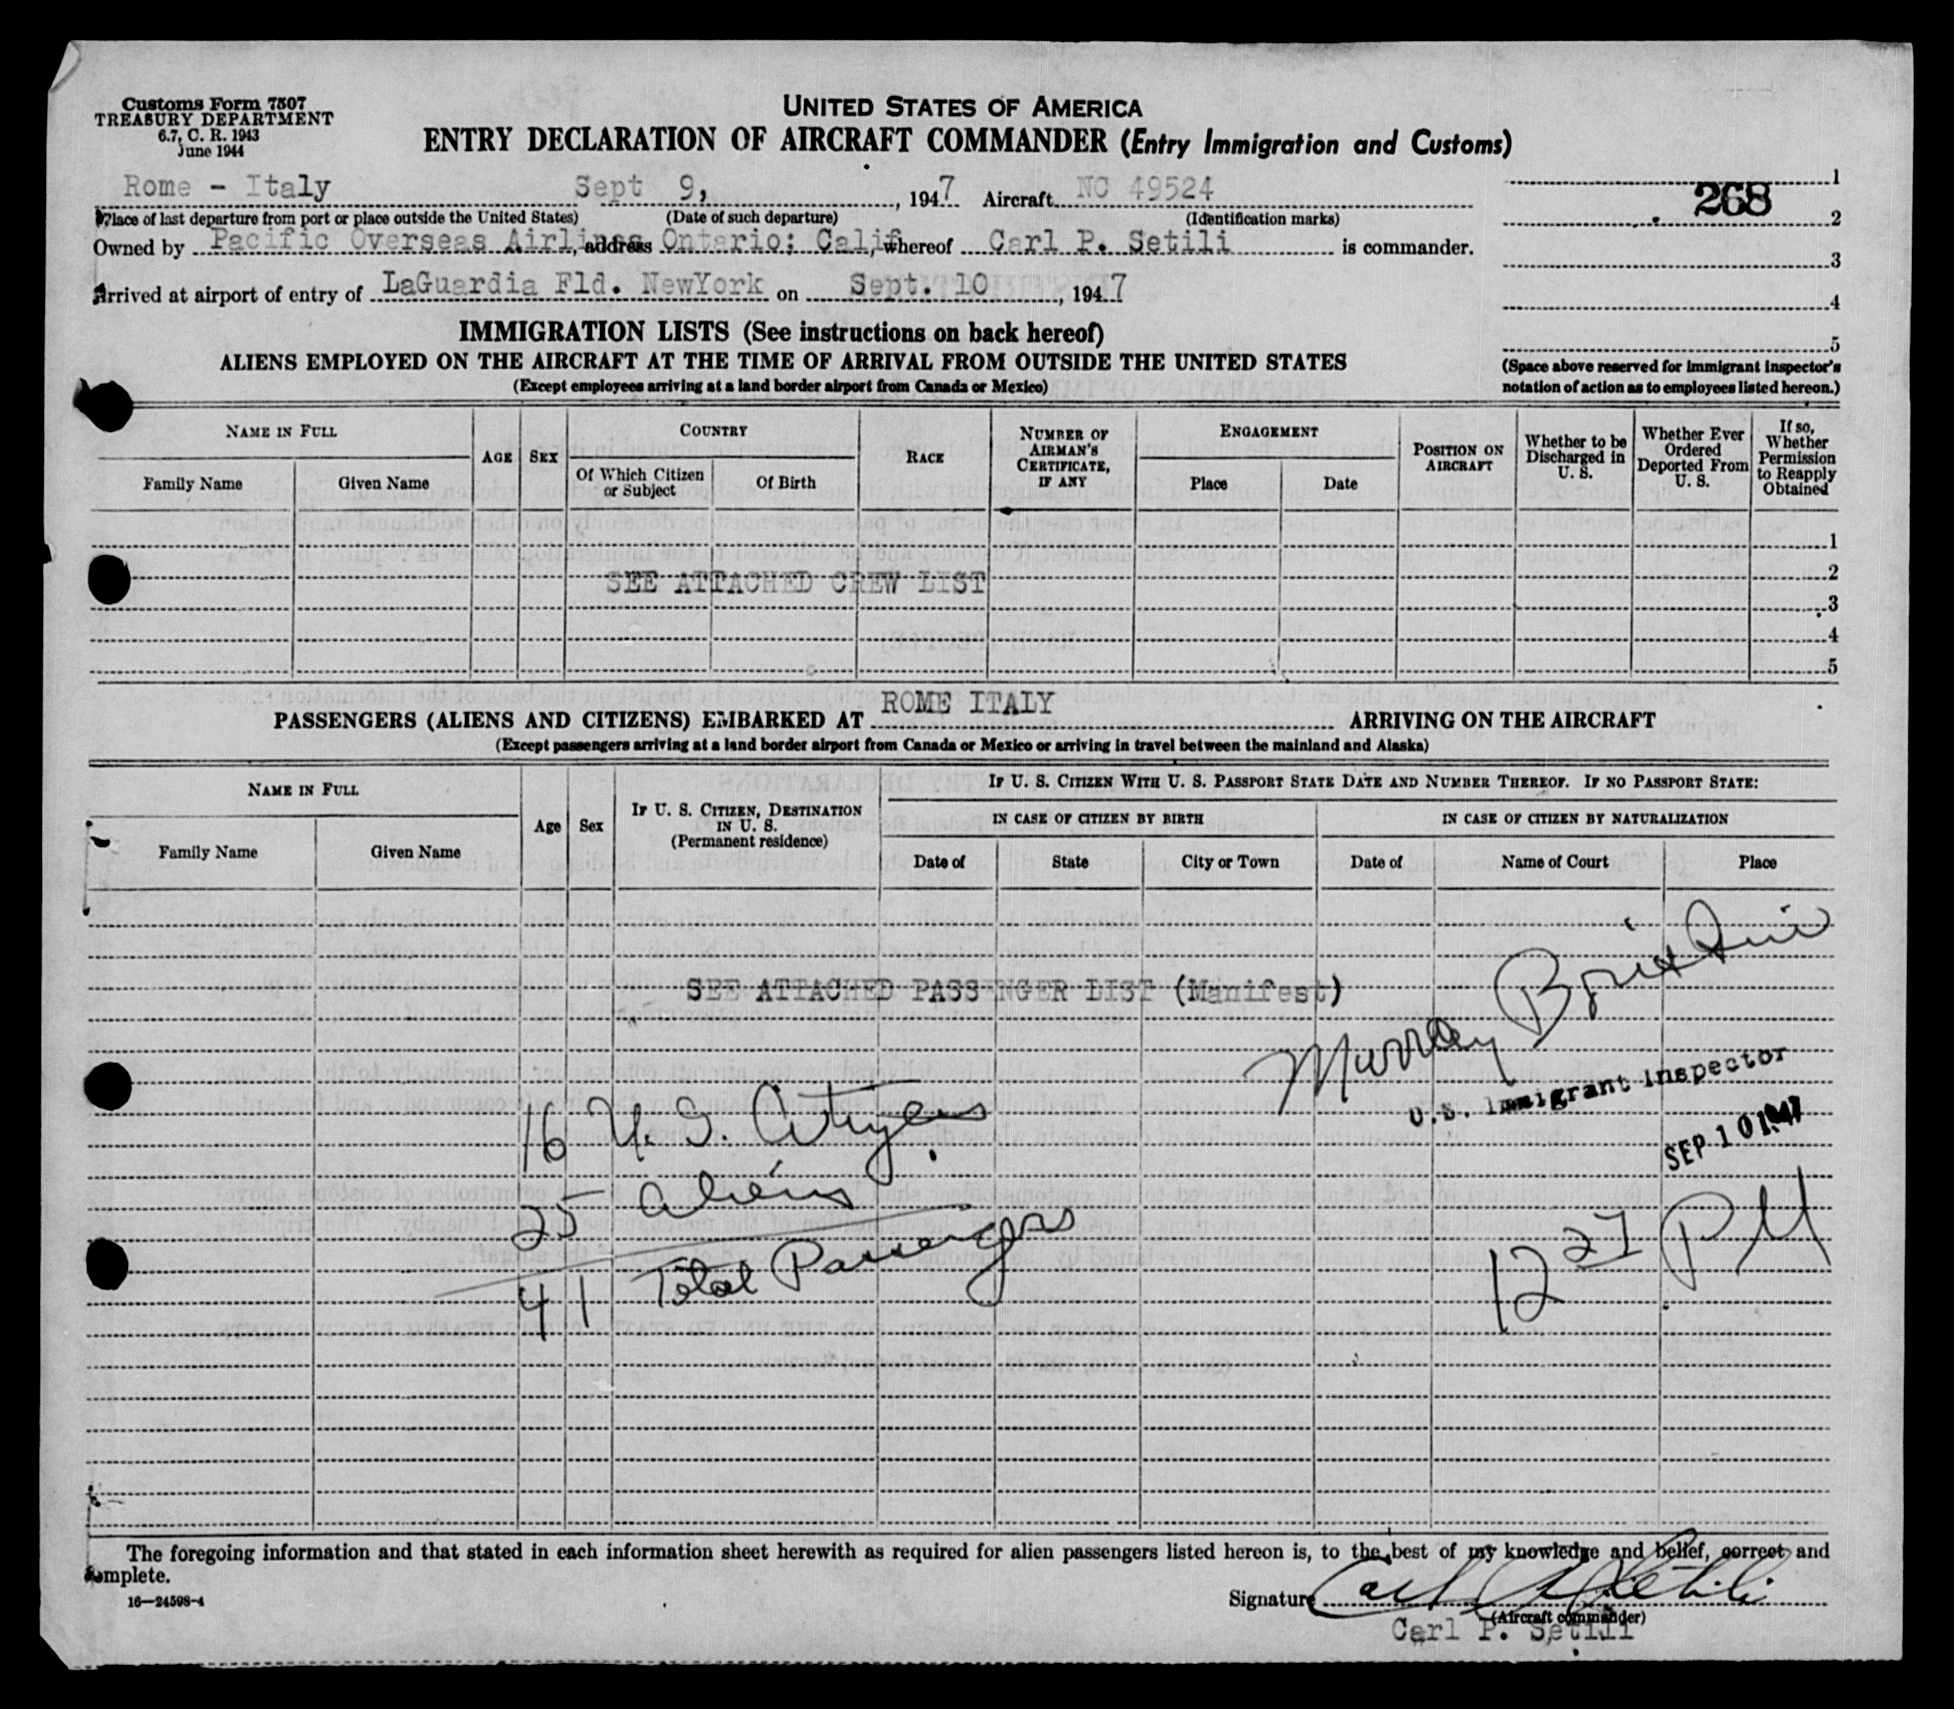 Customs Form 7507
TREASURY DEPARTMENT
6.7, C. R. 1943
June 1944
UNITED STATES OF AMERICA
ENTRY DECLARATION OF AIRCRAFT COMMANDER (Entry Immigration and Customs)
Rome - Italy Sept 9, , 1947 Aircraft NC 49524
(Place of last departure from port or place outside the United States) (Date of such departure) (Identification marks)
Owned by Pacific Overseas Airlines, address Ontario; Calif, whereof Carl P. Setili is commander.
Arrived at airport of entry of LaGuardia Fld. NewYork on Sept. 10 , 1947
1
268
2
3
4
5
(Space above reserved for immigrant inspector's
notation of action as to employees listed hereon.)
IMMIGRATION LISTS (See instructions on back hereof)
ALIENS EMPLOYED ON THE AIRCRAFT AT THE TIME OF ARRIVAL FROM OUTSIDE THE UNITED STATES
(Except employees arriving at a land border airport from Canada or Mexico)
NAME IN FULL
Family Name Given Name
AGE SEX
COUNTRY
Of Which Citizen or Subject Of Birth
RACE
NUMBER OF AIRMAN'S CERTIFICATE, IF ANY
ENGAGEMENT
Place Date
POSITION ON AIRCRAFT
Whether to be Discharged in U. S.
Whether Ever Ordered Deported From U. S.
If so, Whether Permission to Reapply Obtained
1
2
SEE ATTACHED CREW LIST
3
4
5
PASSENGERS (ALIENS AND CITIZENS) EMBARKED AT ROME ITALY ARRIVING ON THE AIRCRAFT
(Except passengers arriving at a land border airport from Canada or Mexico or arriving in travel between the mainland and Alaska)
NAME IN FULL
Family Name Given Name
Age Sex
IF U. S. CITIZEN, DESTINATION IN U. S.
(Permanent residence)
IF U. S. CITIZEN WITH U. S. PASSPORT STATE DATE AND NUMBER THEREOF. IF NO PASSPORT STATE:
IN CASE OF CITIZEN BY BIRTH IN CASE OF CITIZEN BY NATURALIZATION
Date of State City or Town Date of Name of Court Place
SEE ATTACHED PASSENGER LIST (Manifest)
Murray
U.S. Immigrant Inspector
SEP 10 1947
16 U. S. Citizens
25 aliens
41 Total Passengers
12 27 PM
The foregoing information and that stated in each information sheet herewith as required for alien passengers listed hereon is, to the best of my knowledge and belief, correct and
complete.
16—24598-4
Signature Carl P. Setili
(Aircraft commander)
Carl P. Setili